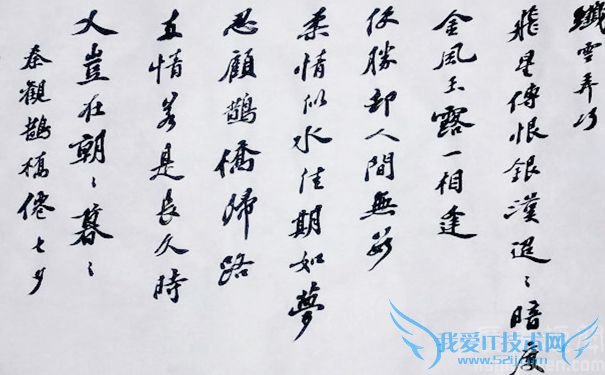 纖雲弄巧
飛星傳恨銀漢迢〻暗度
金風玉露一相逢
便勝却人間無數
柔情似水佳期如夢
忍顧鵲橋歸路
情若是長久時
又豈在朝〻暮〻
秦觀鵲橋僊七夕
我爱IT技术网